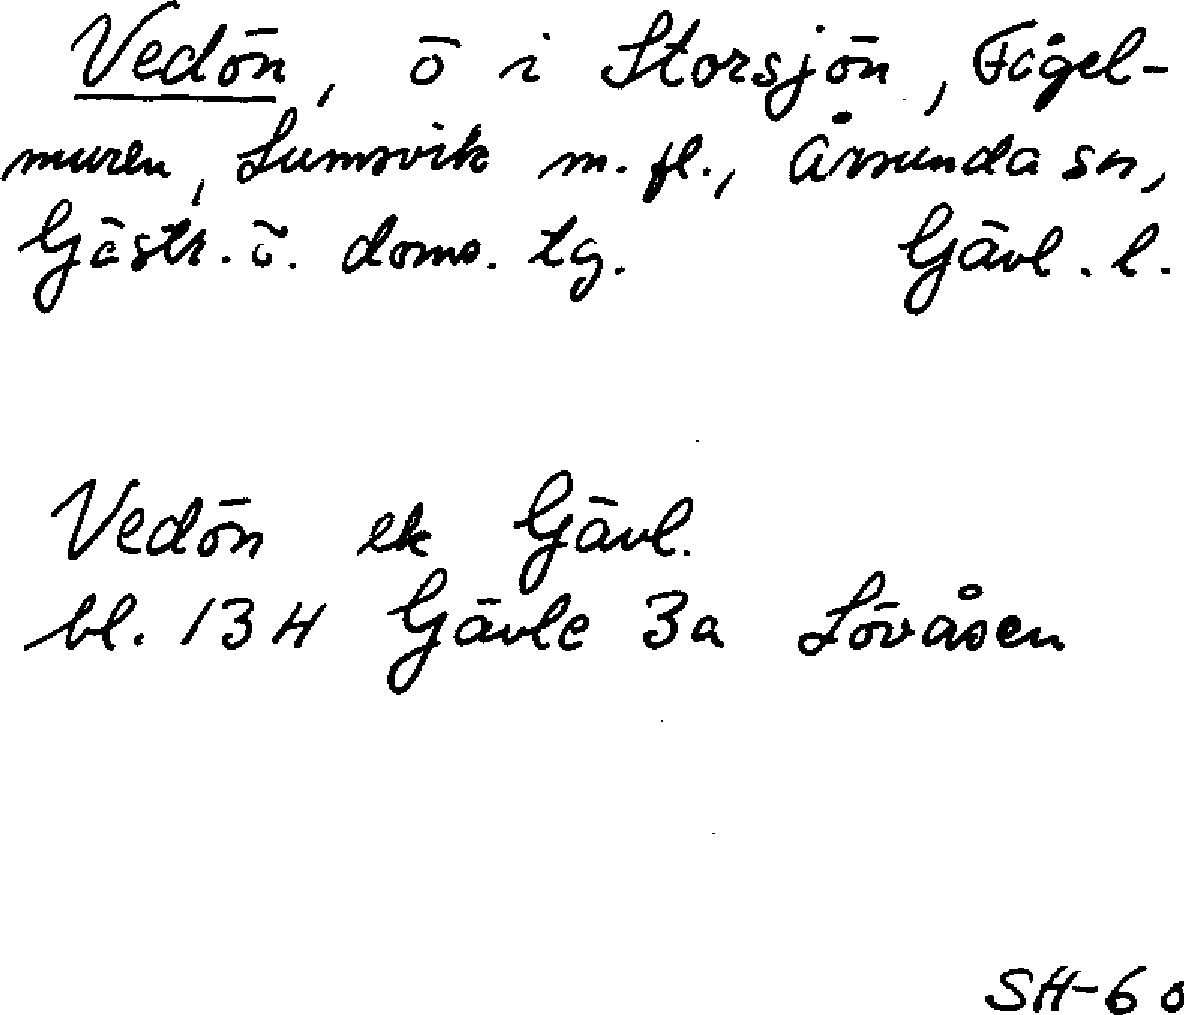 Vedön, ö i Storsjön, Fågel-
muren, Lumsvik m.fl., Årsunda sn,
Gästr. ö. doms. tg. Gävl. l.
Vedön ek Gävl.
bl. 13H Gävle 3a Lövåsen
SH-60